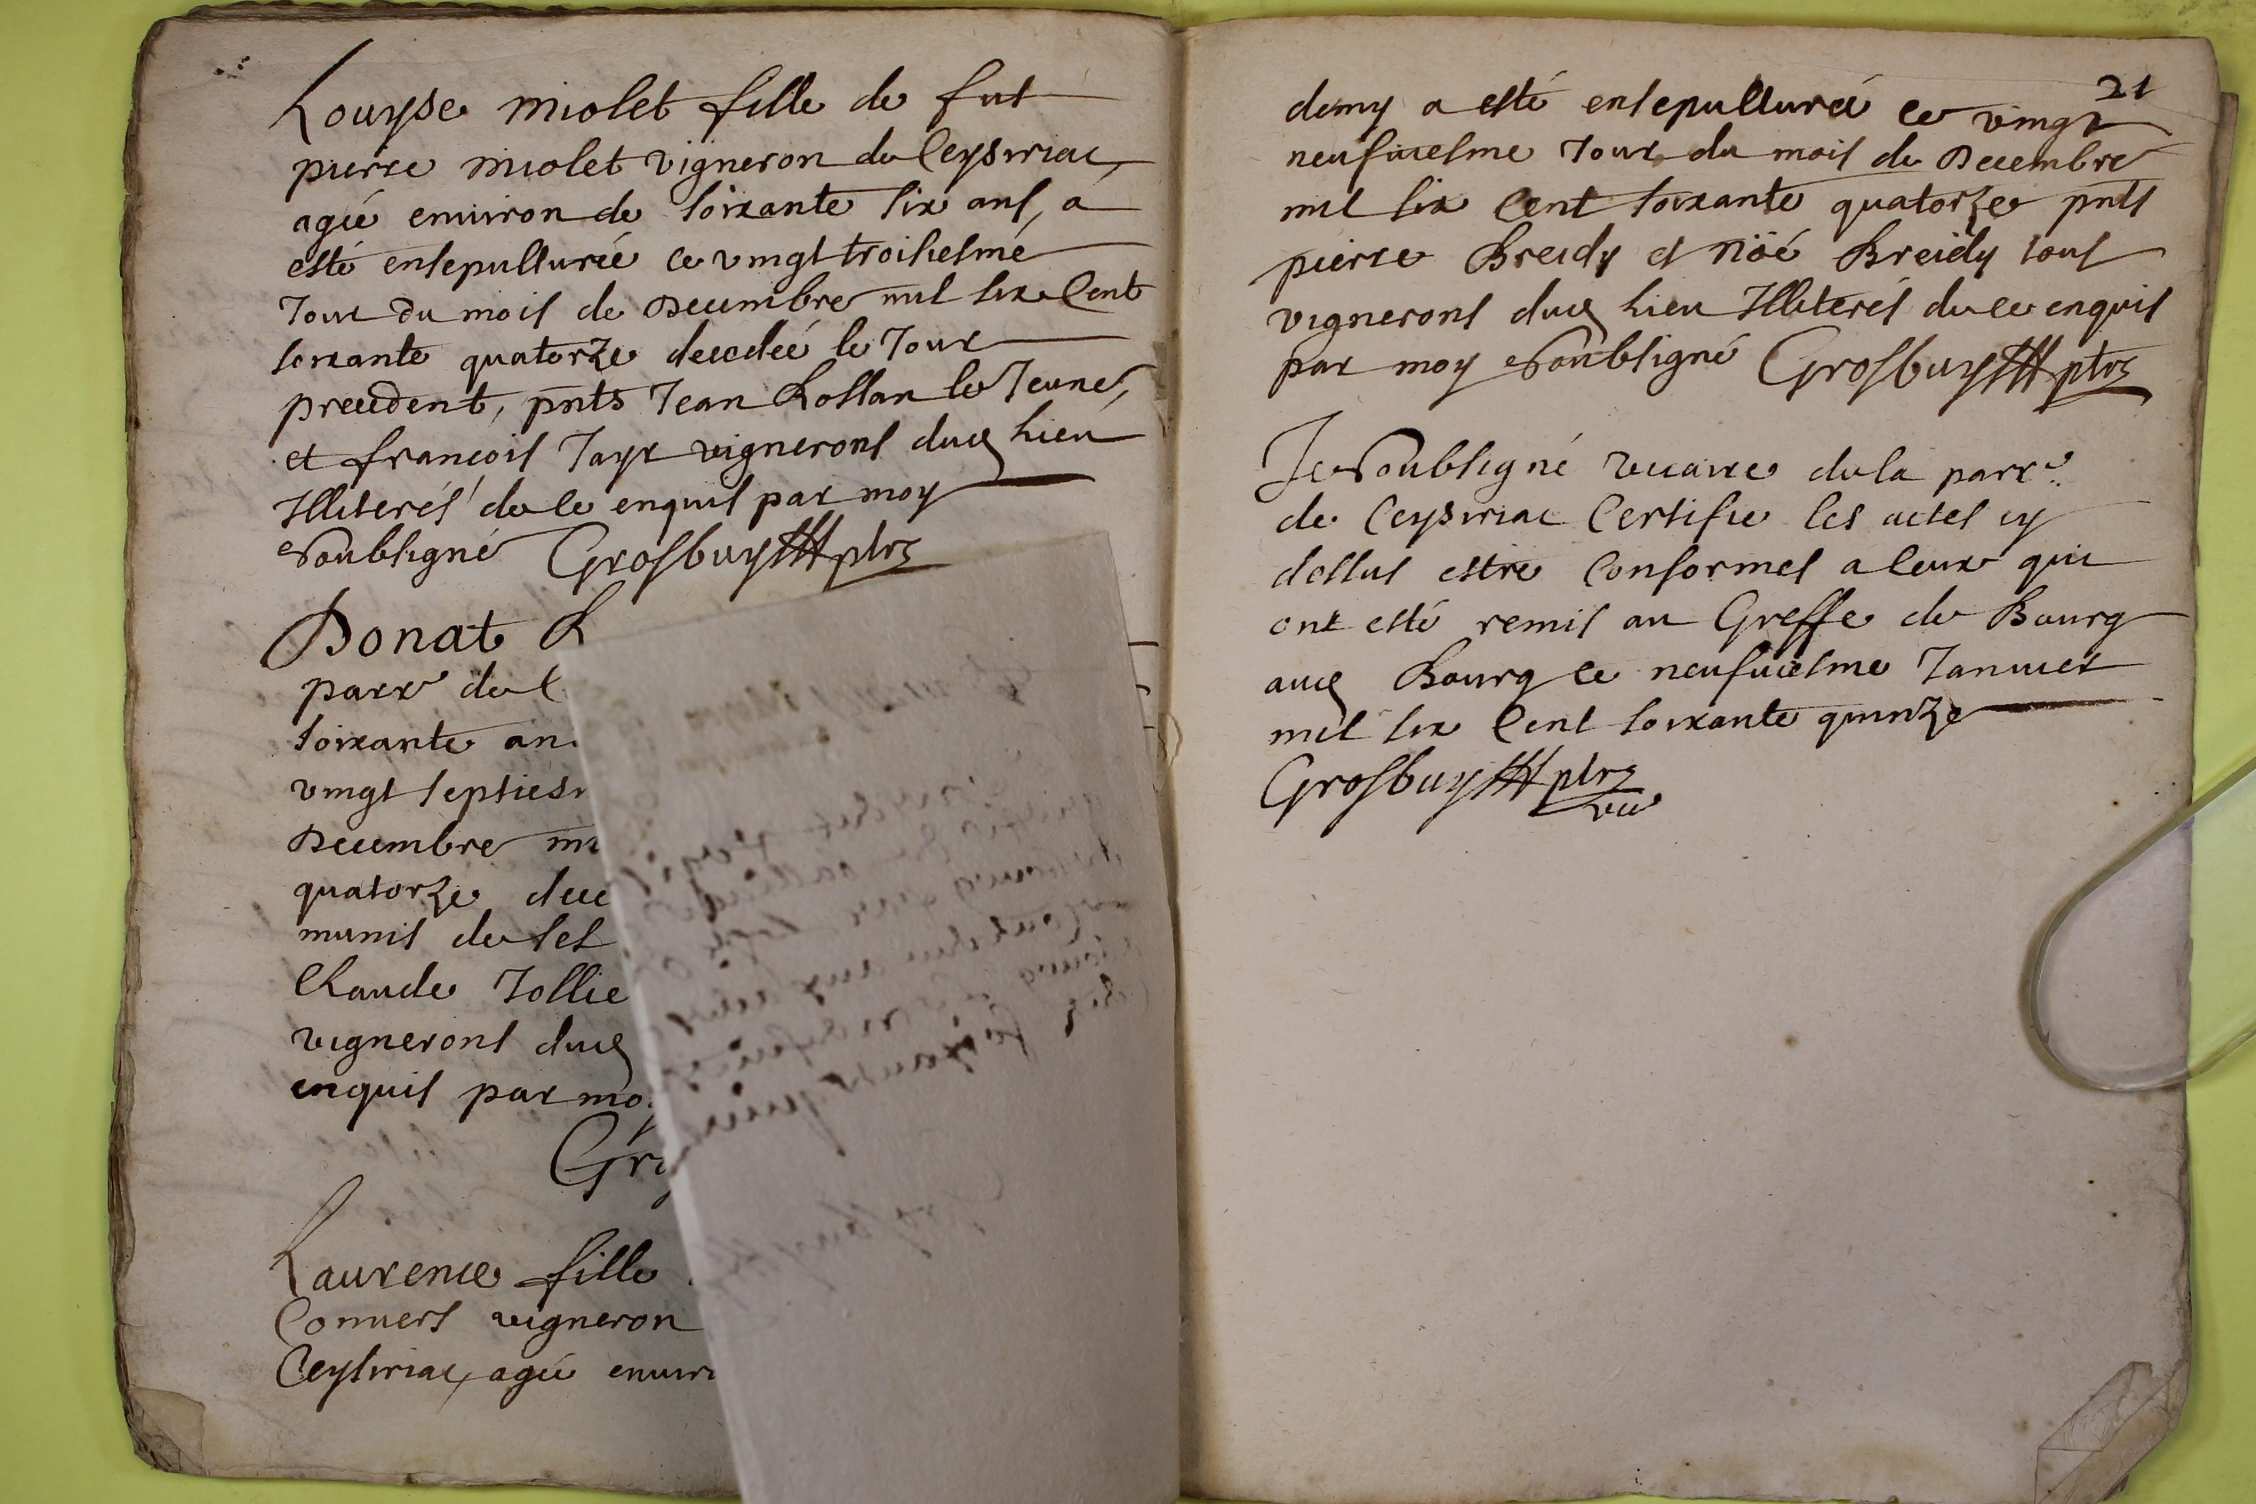 Louyse miolet fille de fut
pierre miolet vigneron de Ceysiriac,
agée enuiron de soixante six ans, a
esté ensepulturée ce vingt troisiesme
Jour du mois de Decembre mil six Cent
soixante quatorze decedée le Jour
precedent, pnts Jean Rollan le Jeune,
et francois Jayr vignerons dud lieu
Illiterés de ce enquis par moy
soubsigné Grosbuy ptre
Donat R
parr de C
soixante an
vingt septies
Decembre mi
quatorze dece
munis de ses
Claude Jollie
vignerons dud
enquis par mo
Gro
Laurence fille
Conuers vigneron
Ceysiriac, agée enuir
21
demy a esté ensepulturée ce vingt
neufuiesme Jour du mois de Decembre
mil six Cent soixante quatorze pnts
pierre Breidy et Nöé Breidy tous
vignerons dud lieu Illiterés de ce enquis
par moy soubsigné Grosbuy ptre
Je soubsigné vicaire de la parr.
de Ceysiriac Certifie les actes cy
dessus estre Conformes a ceux qui
ont esté remis au Greffe de Bourg
aud Bourg ce neufuiesme Januier
mil six Cent soixante quinze
Grosbuy ptre
vic